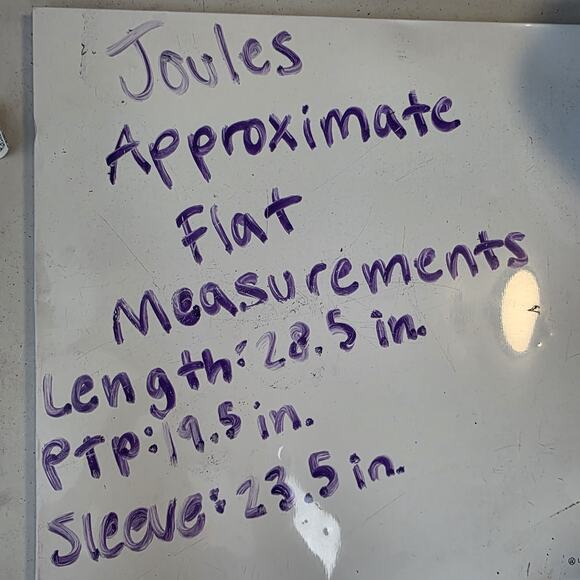 Joules
Approximate
Flat
Measurements
Length: 28.5 in.
PTP: 19.5 in.
Sleeve: 23.5 in.